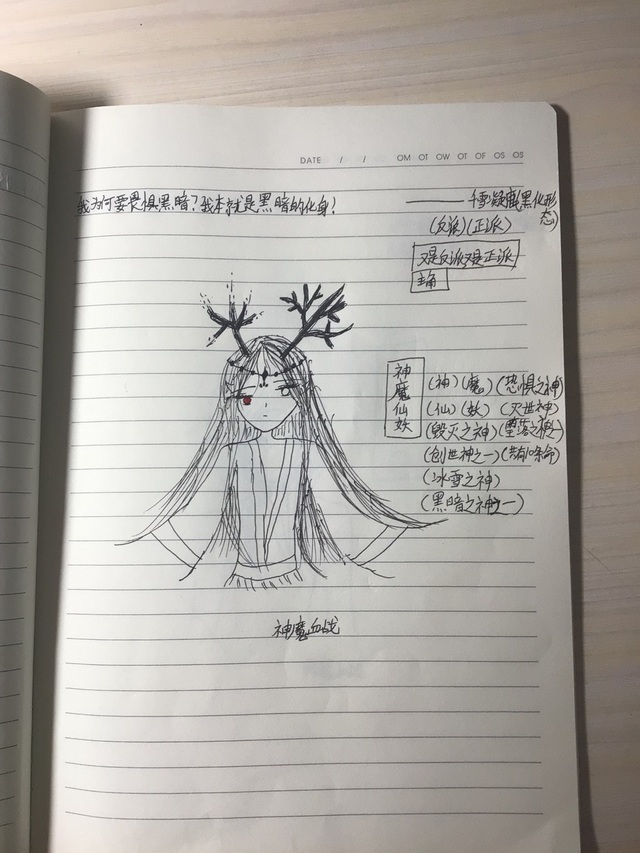 DATE / / OM OT OW OT OF OS OS
我为何要畏惧黑暗?我本就是黑暗的化身!
——千雪凝 黑化形态
(反派)(正派)
又是反派又是正派
主角
神魔仙妖
(神)(魔)(恐惧之神)
(仙)(妖)(灭世神)
(毁灭之神)(堕落之神之一)
(创世神之一)
(冰雪之神)
(黑暗之神之一)
神魔血战